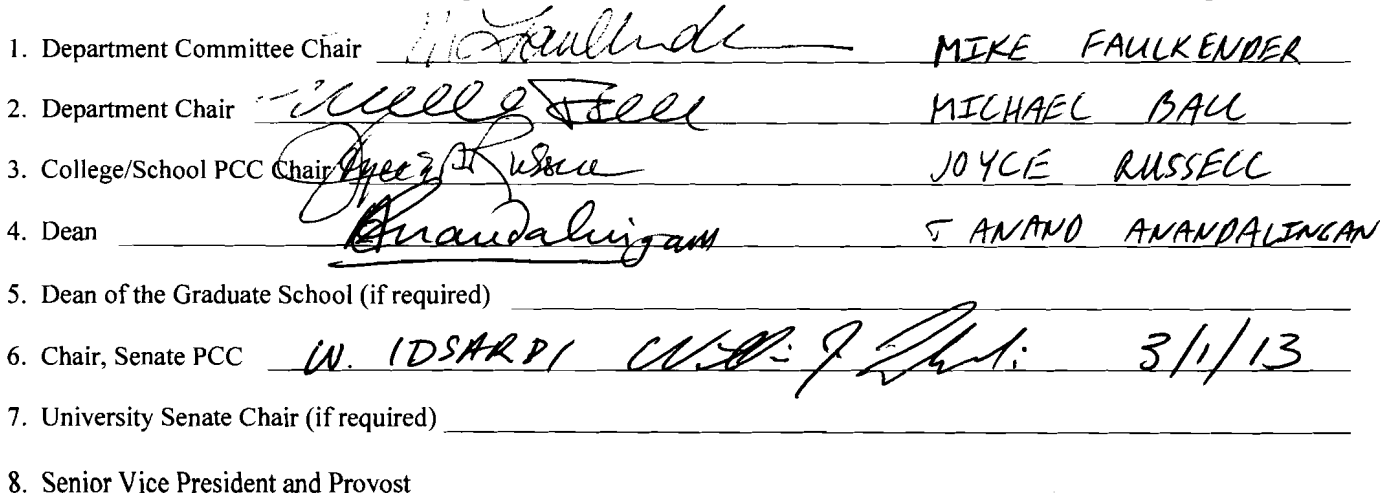 1. Department Committee Chair MIKE FAULKENDER
2. Department Chair MICHAEL BALL
3. College/School PCC Chair Joyce E A Russell JOYCE RUSSELL
4. Dean Anandalingam G ANAND ANANDALINGAN
5. Dean of the Graduate School (if required)
6. Chair, Senate PCC W. IDSARDI William J. Idsardi 3/1/13
7. University Senate Chair (if required)
8. Senior Vice President and Provost